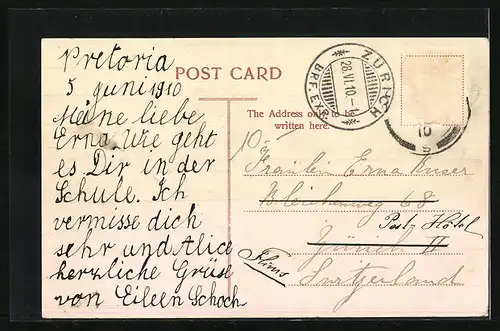 Pretoria
5 Juni 1910
Meine liebe
Erna. Wie geht
es Dir in der
Schule. Ich
vermisse dich
sehr und Alice
herzliche Grüse
von Eileen Schoch
POST CARD
The Address only to be
written here.
ZÜRICH
28.VI.10-1
BRF. EXP.
10
S
10
Fräulein Erna
Bleicherweg 68
Post Hôtel
Zürich II
Flims
Switzerland